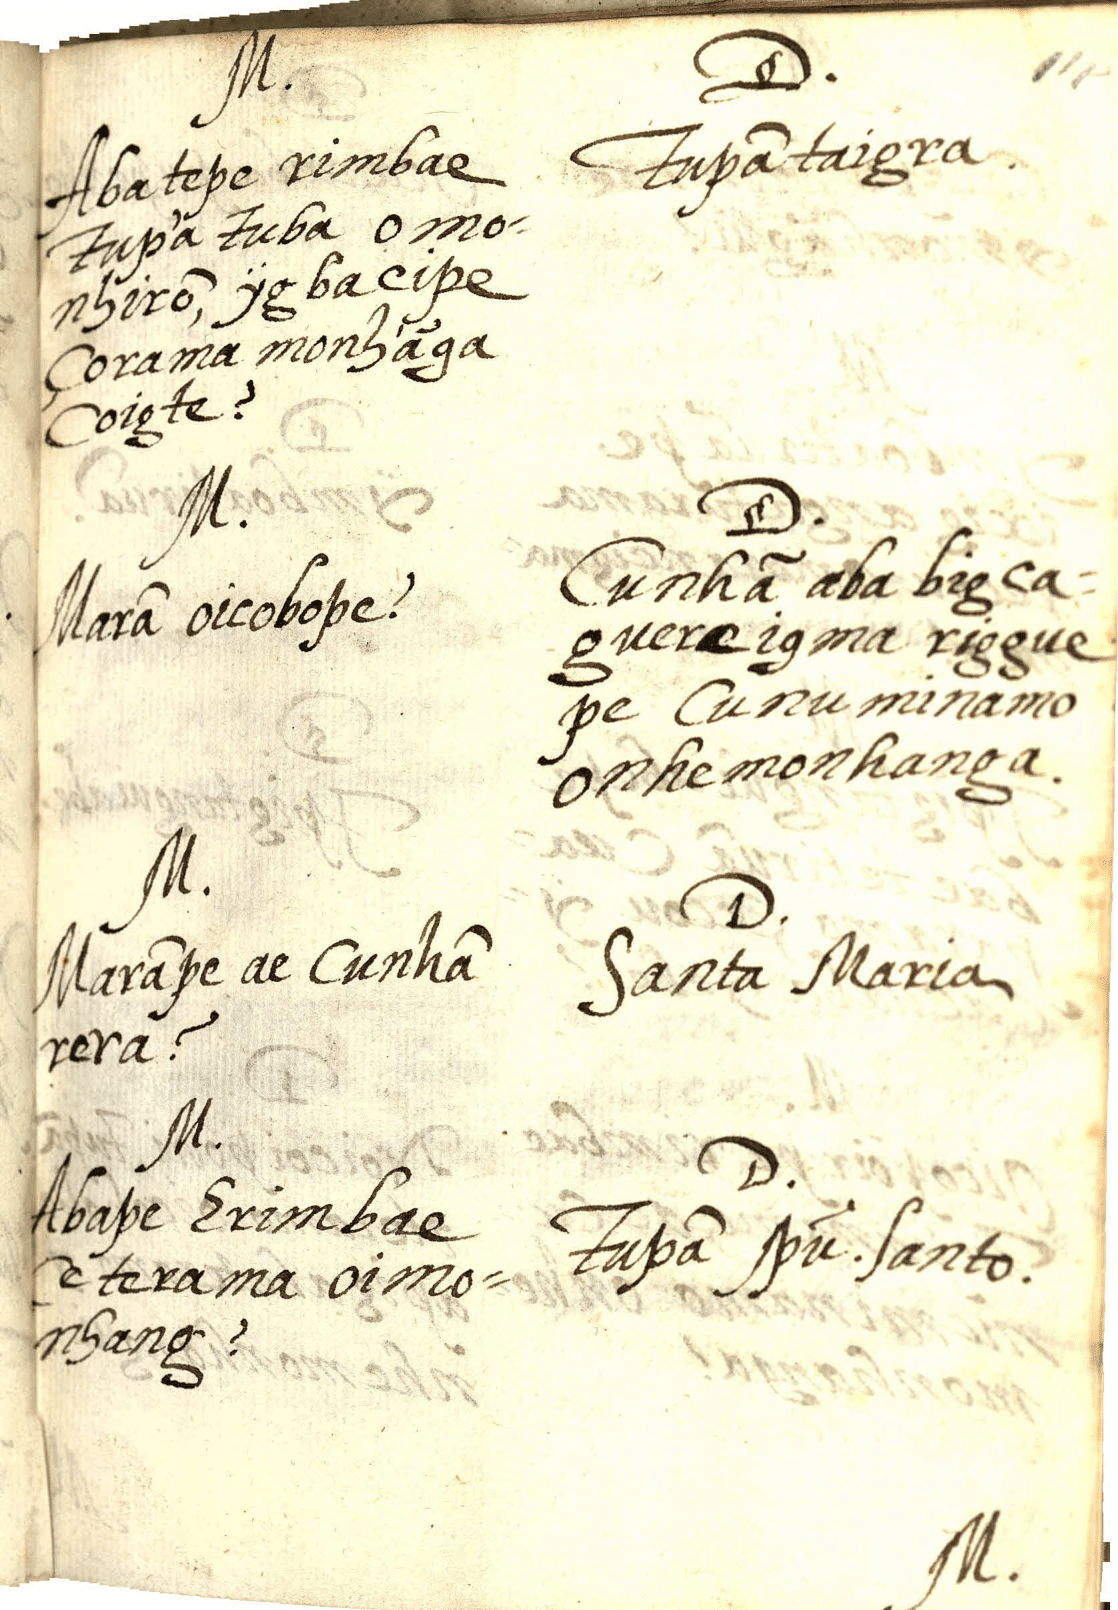 M.
Abatepe rimbae
Tupã Tuba omo-
nhirõ, ÿgbacipe
çorama monhãga
coigte?
D.
Tupã taigra.
M.
Marã oicobope?
D.
Cunhã aba bigca-
guereigma riggue
pe Cunuminamo
onhemonhanga.
M.
Marãpe ae Cunhã
rera?
D.
Santa Maria
M.
Abape Erimbae
çeterama oimo-
nhang?
D.
Tupã Spũ. Santo.
M.